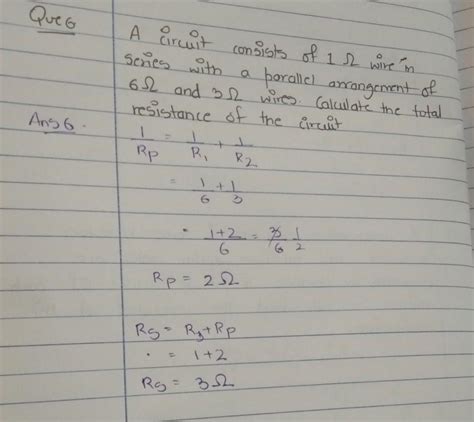 Que 6
A circuit consists of 1 Ω wire in
series with a parallel arrangement of
6Ω and 3Ω wires. Calculate the total
resistance of the circuit
Ans 6.
1/Rp = 1/R1 + 1/R2
= 1/6 + 1/3
1+2/6 = 3/6 1/2
Rp = 2Ω
Rs = R3+Rp
= 1+2
Rs = 3Ω